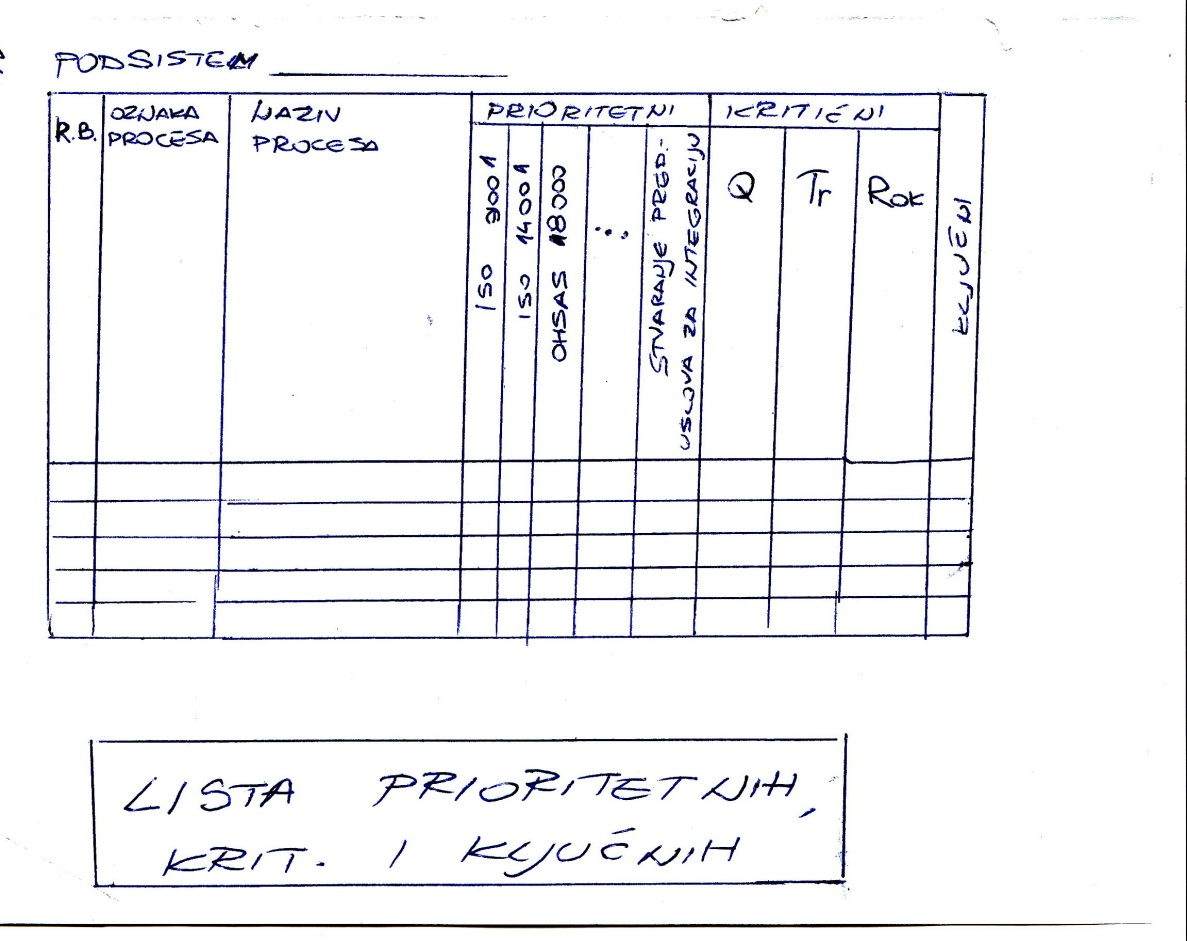 PODSISTEM
R.B.
OZNAKA
PROCESA
NAZIV
PROCESA
PRIORITETNI
ISO 9001
ISO 14001
OHSAS 18000
...
STVARANJE PRED.-
USLOVA ZA INTEGRACIJU
KRITIČNI
Q
Tr
Rok
KLJUČNI
LISTA PRIORITETNIH,
KRIT. I KLJUČNIH